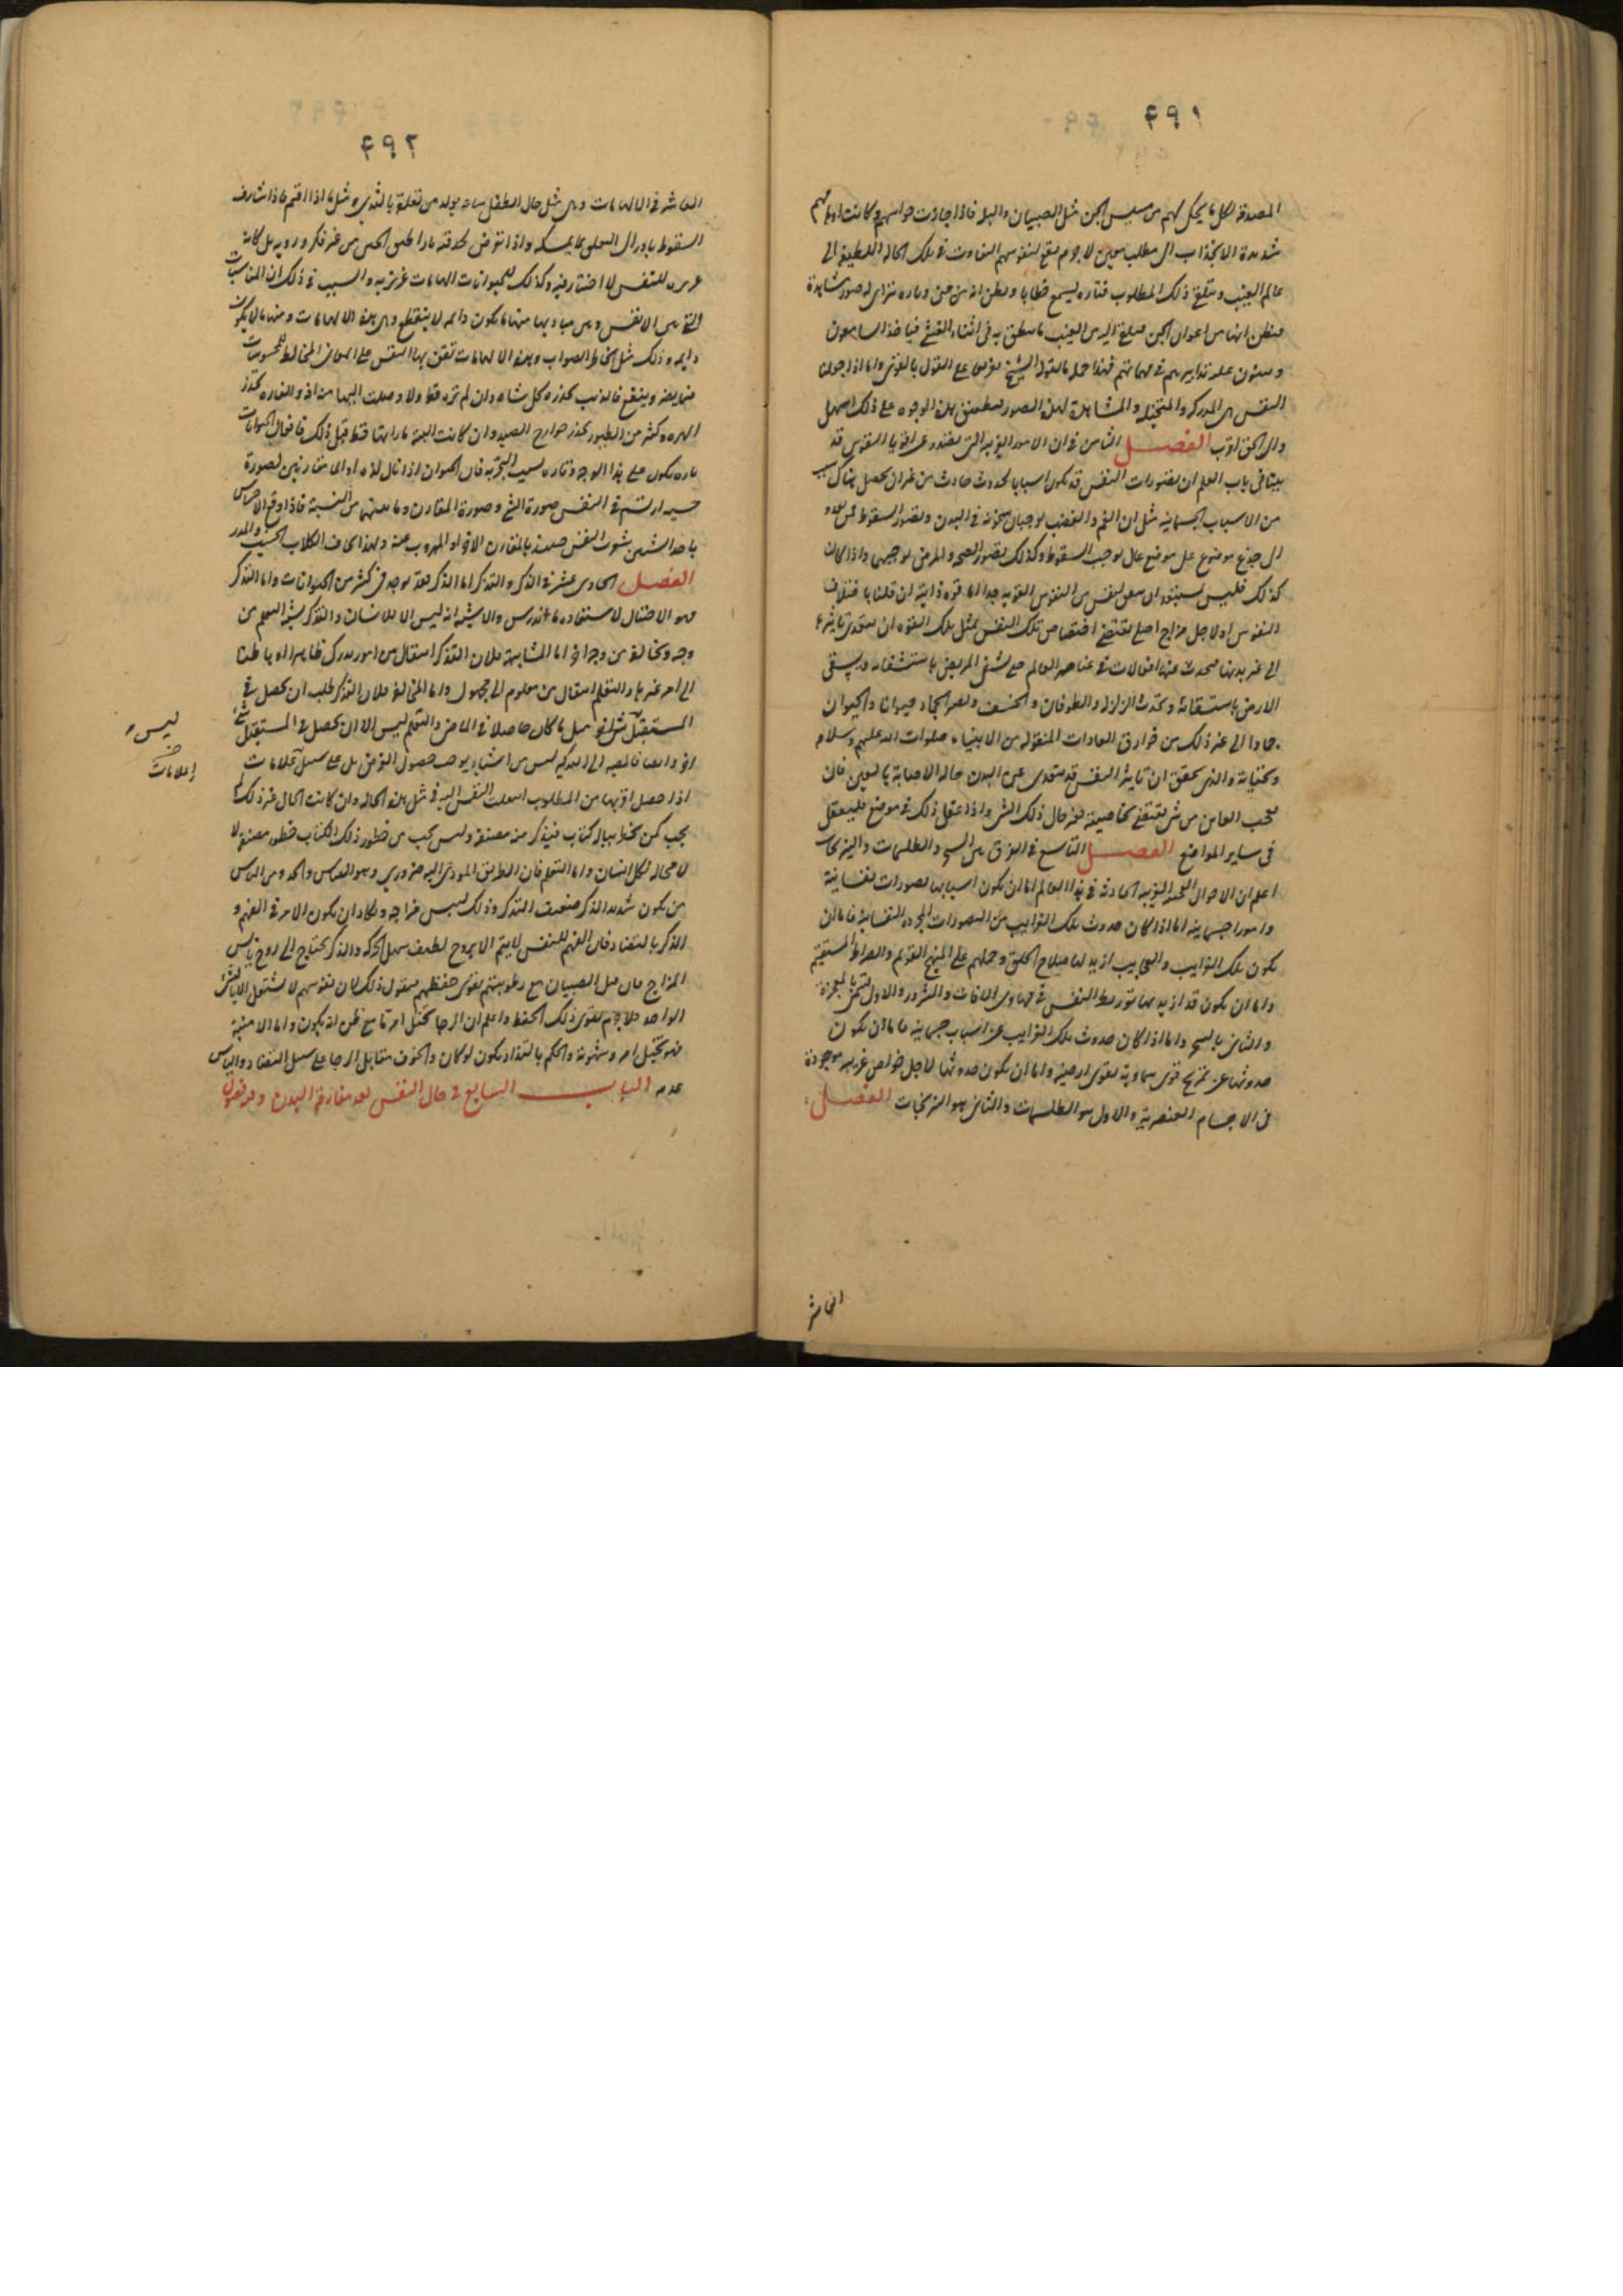 ٤٩١
المصدقة لكل ما يحكى لهم من مسيس الجن مثل الصبيان والبله فاذا جازت حواسهم وكانت اوهامهم
شديدة الانجذاب الى مطلب معين لا جرم يقع لنفوسهم التفاوت في تلك الحاله اللطيفة الى
عالم الغيب ويتلقى ذلك المطلوب فتاره يسمع خطابا ويظن انه من جن وتاره يتراى له صور مشاهدة
فيظن انها من اعوان الجن فيلقى اليه من الغيب ما ينطق به في اثناء الغشى فياخذه السامعون
ويبنون عليه تدابيرهم في مهماتهم فهذا جملة ما يقوله الشيخ بناء على القول بالقوى واما اذا جعلنا
النفس هى المدركه والمتخيله والمشاهدة لهذه الصور فتطبيق هذه الوجوه على ذلك اسهل
والى الحق اقرب الفصل الثامن في ان الامور الغريبة التى يقتدر عليها اقوياء النفوس قد
بينا في باب العلم ان تصورات النفس قد تكون اسبابا لحدوث حادث من غير ان يحصل هناك سبب
من الاسباب الجسمانيه مثل ان الغم والغضب يوجبان سخونة في البدن وتصور السقوط ممن يعدو
الى جذع موضوع على موضع عال يوجب السقوط وكذلك تصور الصحه والمرض يوجبهما واذا كان
كذلك فليس يستبعد ان يتفق لنفس من النفوس القويه جدا اما قوة ذاتية ان قلنا باختلاف
النفوس او لاجل مزاج اصلى يقتضى اختصاص تلك النفس بمثل تلك القوه ان يتعدى تاثيرها
الى غير بدنها فيحدث عنها انفعالات في عناصر العالم حتى يشفى المريض باستشفائه ويسقى
الارض باستسقائه وتحدث الزلازل والطوفان والخسف ويصير الجماد حيوانا والحيوان
جمادا الى غير ذلك من خوارق العادات المنقوله من الانبياء صلوات الله عليهم وسلامه
وتحياته والذى يحقق ان تاثير النفس قد يتعدى عن البدن حاله الاصابة بالعين فان
تعجب العاين من شى يقتضى بخاصيته تغير حال ذلك الشى واذا عقل ذلك في موضع فليعقل
في ساير المواضع الفصل التاسع في الفرق بين السحر والطلسمات والنيرنجات
اعلم ان الاحوال العجيبة الغريبه الحادثه في هذا العالم اما ان يكون اسبابها تصورات نفسانية
وامورا جسمانية اما اذا كان حدوث تلك الغرايب من التصورات المجرده النفسانية فاما ان
يكون تلك الغرايب والعجايب اريد بها صلاح الخلق وحملهم على المنهج القويم والصراط المستقيم
واما ان يكون قد اريد بها تورط النفس في مهاوى الافات والشرور والاول يسمى بالمعجزة
والثانى بالسحر واما اذا كان حدوث تلك الغرايب عن اسباب جسمانيه فاما ان يكون
حدوثها عن تمزيج قوى سماويه بقوى ارضيه واما ان يكون حدوثها لاجل خواص غريبه موجودة
في الاجسام العنصرية والاول هو الطلسمات والثانى هو النيرنجات الفصل
العاشر
٤٩٢
العاشر في الالهامات وهى مثل حال الطفل ساعة يولد من تعلقه بالثدى ومثل ما اذا اقيم فاذا شارف
السقوط بادر الى التعلق بما يمسكه واذا تعرض لحدقته بادر الى اطباق الجفن من غير فكر ورويه بل كانه
غريزه للنفس لا اختيار فيه وكذلك للحيوانات الهامات غريزيه والسبب في ذلك ان المناسبات
التى بين الانفس وبين مباديها منها ما يكون دائمه لا ينقطع وهى هذه الالهامات ومنها ما لا يكون
دايمه وذلك مثل الخاطر الصواب وبهذه الالهامات تقف بها النفس على المعانى المخالطه للمحسوسات
فيما يضر وينفع فالذيب يحذره كل شاه وان لم تره قط ولا وصلت اليها منه اذى والفاره تحذر
الهره وكثير من الطيور تحذر جوارح الصيد وان كانت البتة ما راتها قط قبل ذلك فافعال الحيوانات
تاره تكون على هذا الوجه وتاره بسبب التجربه فان الحيوان اذا نال لذه او الما مقارنين لصورة
حسيه ارتسم في النفس صورة الشى وصورة المقارن وما بينهما من النسبة فاذا وقع الاحساس
باحد الشيئين تنبهت النفس منه بالمقارن الاخر او المهروب عنه ولهذا تخاف الكلاب الخشب والمدر
الفصل الحادى عشر في الذكر والتذكر اما الذكر فقد يوجد في كثير من الحيوانات واما التذكر
وهو الاحتيال لاستعاده ما اندرس والاشبه انه ليس الا للانسان والتذكر يشبه التعلم من
وجه ويخالفه من وجه اخر اما المشابهة فلان التذكر انتقال من امور مدركة ظاهرا او باطنا
الى امر غيرها والتعلم انتقال من معلوم الى مجهول واما المخالفة فلان التذكر طلب ان يحصل في
المستقبل مثل ما كان حاصلا في الماضى والتعلم ليس الا ان يحصل في المستقبل شىء
اخر وايضا فالمصير الى التذكر ليس من اشياء يوجب حصول الغرض بل على سبيل علامات
اذا حصل اقربها من المطلوب انتقلت النفس اليه في مثل هذه الحاله وان كانت الحال غير ذلك لم
يجب كمن يخطر بباله كتاب فيتذكر منه مصنفه وليس يجب من خطور ذلك الكتاب خطور مصنفه لا
لا محاله لكل انسان واما التعلم فان الطريق المودى اليه ضرورى وهو القياس والحد ومن الناس
من يكون شديد الذكر ضعيف التذكر وذلك ليبس مزاجه ويكاد ان يكون الامر في الفهم و
الذكر بالتضاد فان الفهم للنفس لا يتم الا بروح لطيف سهل الحركه والذكر يحتاج الى روح يابس
المزاج فان قيل الصبيان مع رطوبتهم يقوى حفظهم فيقول ذلك لان نفوسهم لا تشتغل الا بالشى
الواحد فلا جرم يقوى ذلك الحفظ واعلم ان الرجا تخيل امر ما مع ظن انه يكون واما الامنية
فهو تخيل امر وشهوته والحكم بالتذاذ يكون لو كان والخوف مقابل الرجا على سبيل التضاد والياس
عدمه الباب السابع في حال النفس بعد مفارقة البدن وفيه فصول
ليس
علامات